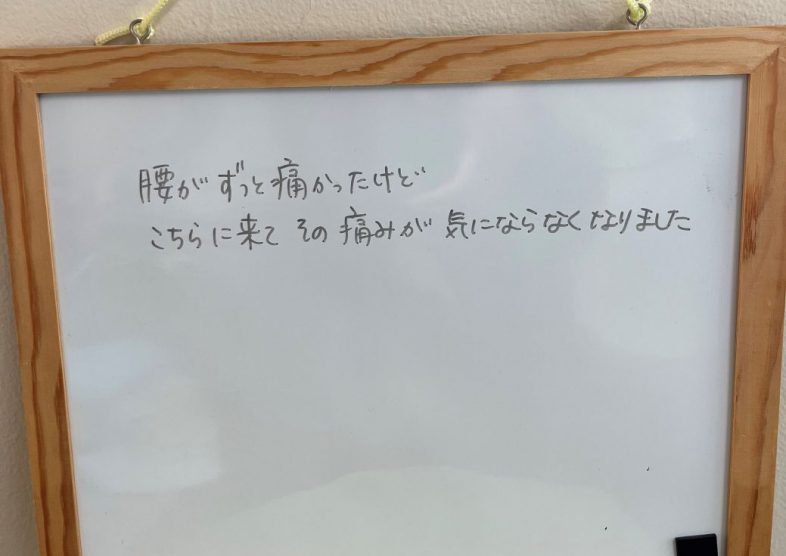 腰がずっと痛かったけど
こちらに来て その 痛みが 気にならなくなりました